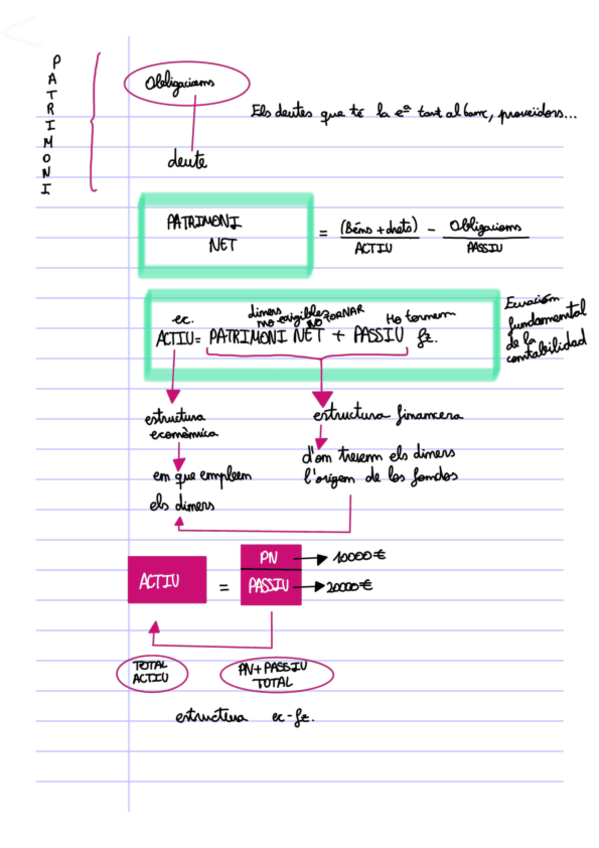 PATRIMONI
Obligacions
Els deutes que té la eª tant al banc, proveïdors...
deute
PATRIMONI
NET
= (Béns + drets) - Obligacions
ACTIU PASSIU
ec.
diners
no exigibles NO TORNAR
Ho tornem
ACTIU = PATRIMONI NET + PASSIU fz.
Ecuación
fundamental
de la
contabilidad
estructura
econòmica
estructura financera
en que empleem
els diners
d'on treiem els diners
l'origen de los fondos
ACTIU
=
PN
10000€
PASSIU
20000€
TOTAL
ACTIU
PN+PASSIU
TOTAL
estructura ec-fz.